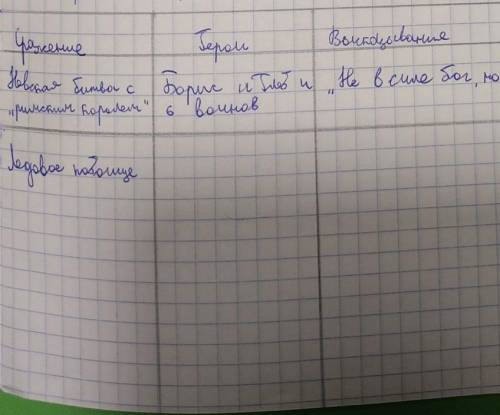 Сражение Герои Высказывания
Невская битва с Борис и Глеб и „Не в силе бог, но
„римским королем“ 6 воинов
Ледовое побоище